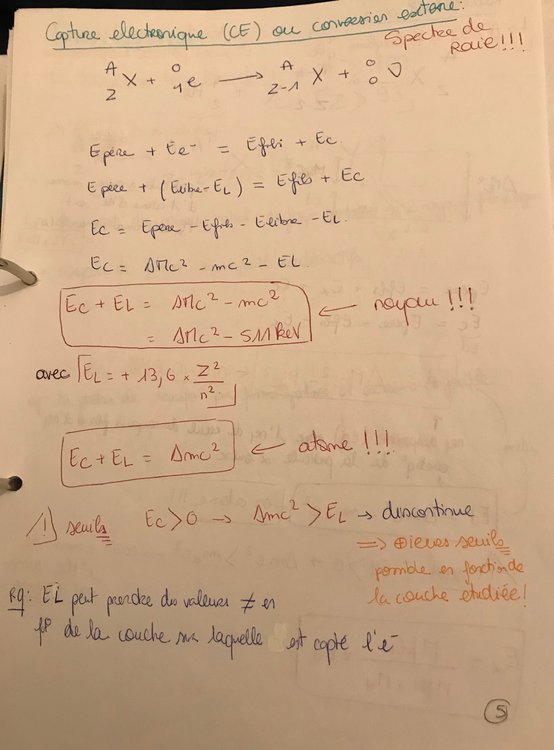 Capture electronique (CE) ou conversion externe:
Spectre de
Raie!!!
A/Z X + 0/1 e → A/Z-1 X + 0/0 ν
Epère + Ee⁻ = Efils + Ec
Epère + (Elibre-EL) = Efils + Ec
Ec = Epère - Efils - Elibre - EL.
Ec = ΔMc² - mc² - EL.
Ec + EL = ΔMc² - mc² ← noyau !!!
= ΔMc² - 511 keV
avec EL = + 13,6 × Z²/n²
Ec + EL = Δmc² ← atome !!!
/!\ seuils Ec > 0 → Δmc² > EL → discontinue
⇒ ⊕ieurs seuils
possible en fonction de
la couche étudiée!
Rq: EL peut prendre des valeurs ≠ en
f° de la couche sur laquelle est capté l'e⁻
5